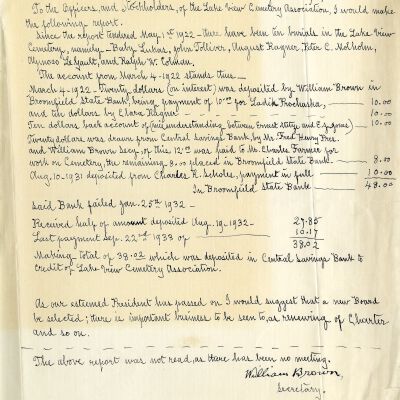 To the Officers, and Stockholders, of the Lake View Cemetery Association, I would make
the following report.
Since the report tendered May 1st 1922 - there have been ten burials in the Lake View
Cemetery, namely - Baby Lukas, John Tolliver, August Ragner, Peter C. Molholm,
and Ralph W. Colman.
The account from March 4 - 1922 stands thus -
March 4 - 1922 - Twenty dollars (on interest) was deposited by William Brown in
Broomfield State Bank, being payment of 10.00 for Ladik Prochaska, — 10.00
and ten dollars by Clara Ragner — 10.00
Ten dollars back account of (misunderstanding between Ernest and ) — 10.00
Twenty dollars was drawn from Central Savings Bank, by Mr. Fred Henry Pres.
and William Brown Secy, of this 12.00 was paid to Mr. Charles for
work on Cemetery, the remaining 8.00 placed in Broomfield State Bank. — 8.00
Aug. 10 - 1931 deposited from Charles R. Scholes, payment in full — 10.00
In Broomfield State Bank — 48.00
Said Bank failed Jan. 25th 1932 -
Received half of amount deposited Aug. 19 - 1932 - 27.85
Last payment Sep. 22nd 1933 of — 10.17
38.02
Making total of 38.02 which was deposited in Central Savings Bank to
credit of Lake View Cemetery Association.
As our esteemed President has passed on I would suggest that a new Board
be selected; there is important business to be seen to, as renewing of Charter
and so on.
The above report was not read, as there has been no meeting.
William Brown,
Secretary.